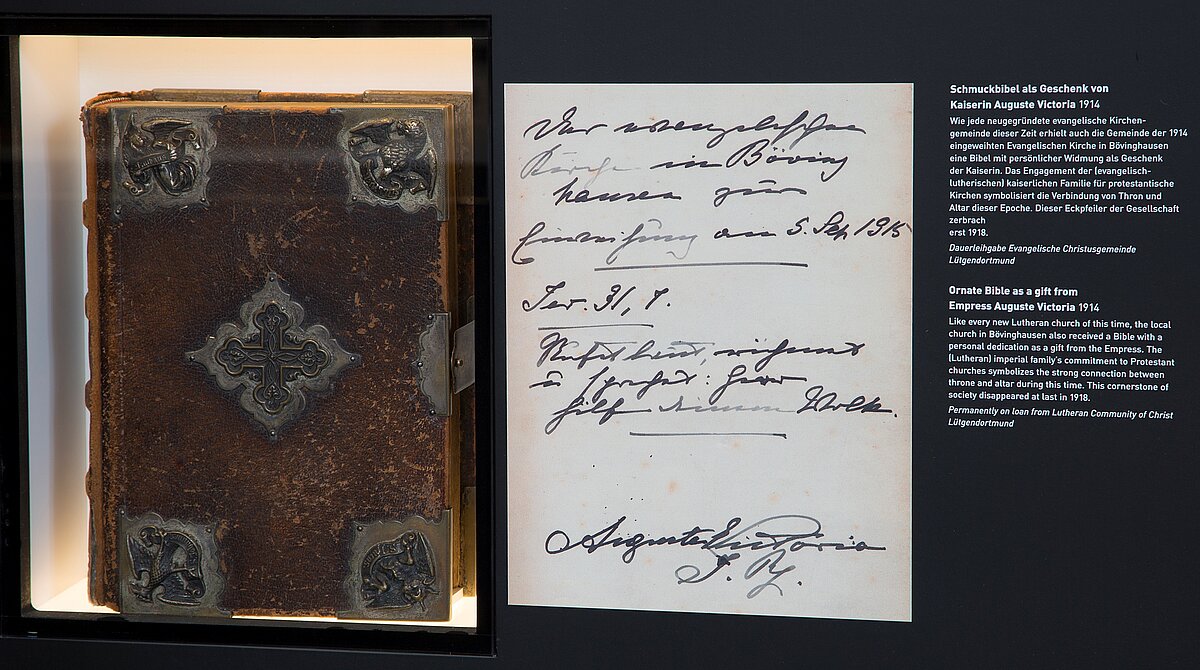 Der evangelischen
Kirche in Böving
hausen zur
Einweihung am 5. Sep 1915
Jer. 31, 7.
Rufet laut, rühmet
u sprechet: Herr
hilf deinem Volk.
Auguste Victoria
I. R.
Schmuckbibel als Geschenk von
Kaiserin Auguste Victoria 1914
Wie jede neugegründete evangelische Kirchen-
gemeinde dieser Zeit erhielt auch die Gemeinde der 1914
eingeweihten Evangelischen Kirche in Bövinghausen
eine Bibel mit persönlicher Widmung als Geschenk
der Kaiserin. Das Engagement der (evangelisch-
lutherischen) kaiserlichen Familie für protestantische
Kirchen symbolisiert die Verbindung von Thron und
Altar dieser Epoche. Dieser Eckpfeiler der Gesellschaft
zerbrach
erst 1918.
Dauerleihgabe Evangelische Christusgemeinde
Lütgendortmund
Ornate Bible as a gift from
Empress Auguste Victoria 1914
Like every new Lutheran church of this time, the local
church in Bövinghausen also received a Bible with a
personal dedication as a gift from the Empress. The
(Lutheran) imperial family's commitment to Protestant
churches symbolizes the strong connection between
throne and altar during this time. This cornerstone of
society disappeared at last in 1918.
Permanently on loan from Lutheran Community of Christ
Lütgendortmund